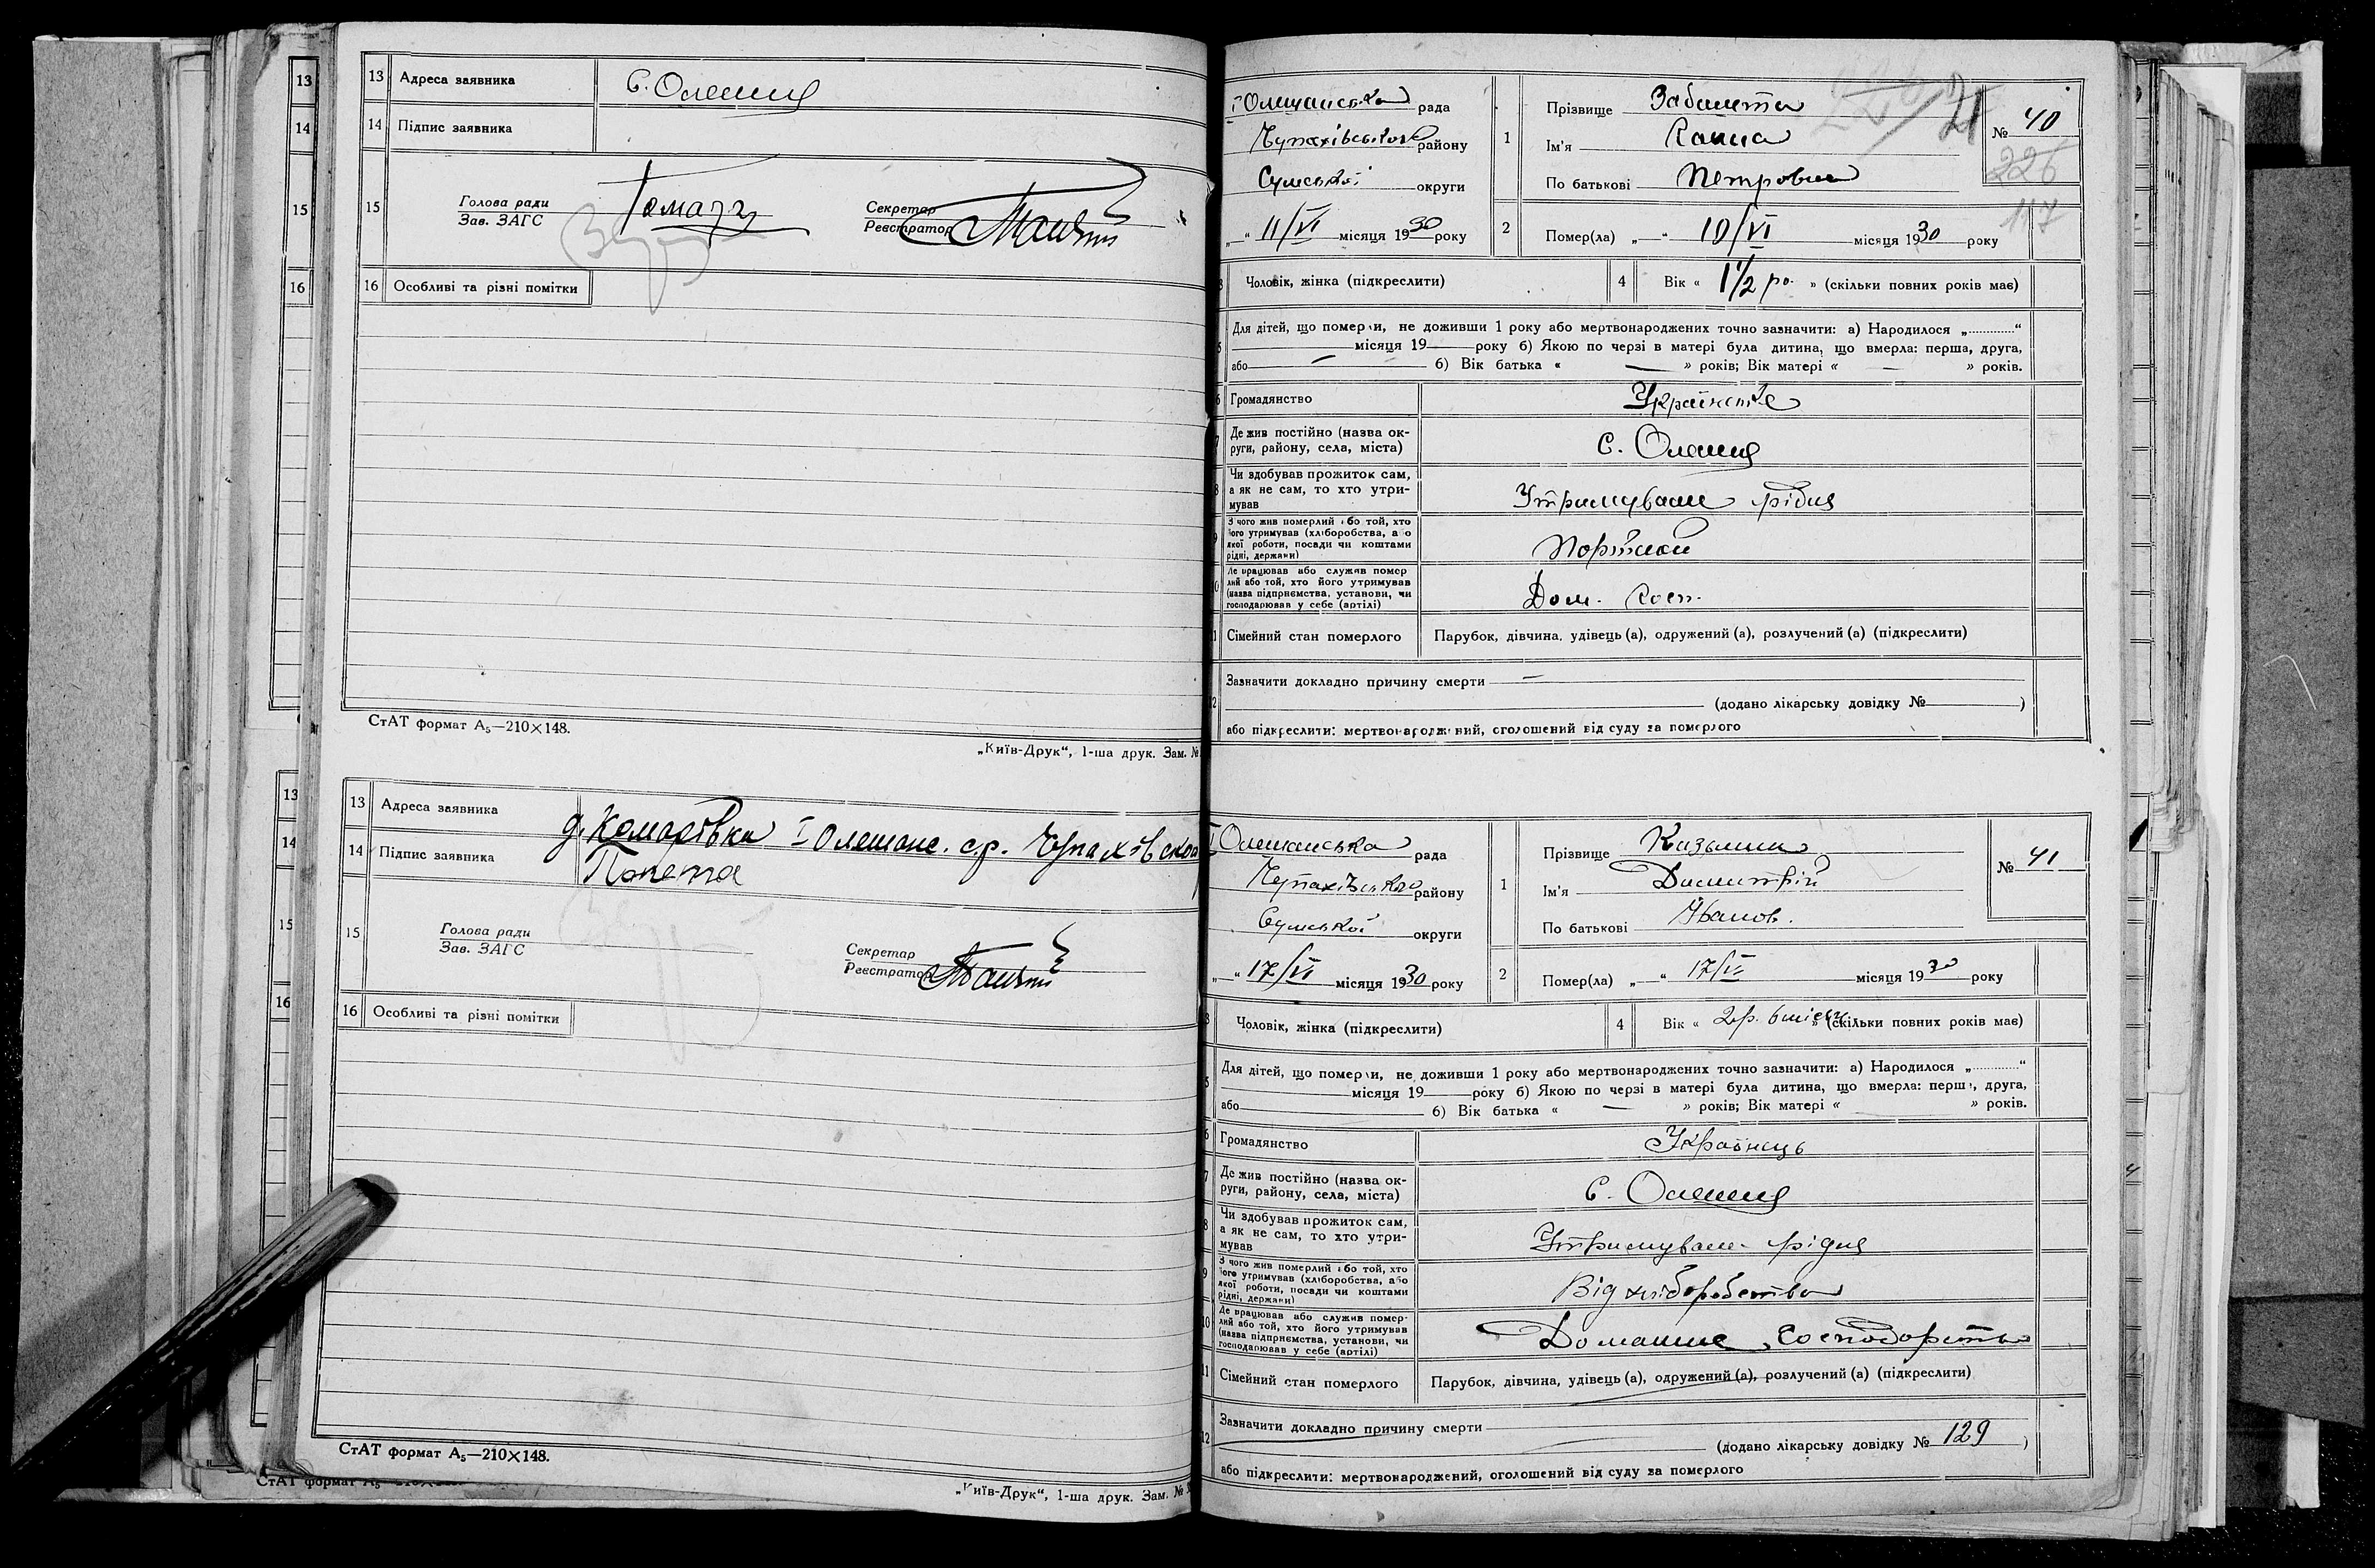 13 Адреса заявника С. Олешня
14 Підпис заявника
15 Голова ради
Зав. ЗАГС
Секретар
Реєстратор
16 Особливі та різні помітки
СтАТ формат А₅—210×148.
„Київ-Друк“, 1-ша друк. Зам. №
13 Адреса заявника д. Комарівка І Олешанс. с.р.
14 Підпис заявника
15 Голова ради
Зав. ЗАГС
Секретар
Реєстратор
16 Особливі та різні помітки
СтАТ формат А₅—210×148.
„Київ-Друк“, 1-ша друк. Зам. №
І Олешанська рада
Чупахівського району
Сумської округи
„—“ 11/VI місяця 1930 року
1 Прізвище
Ім'я
По батькові Петровна
№ 40
226
117
2 Помер(ла) „—“ 10/VI місяця 1930 року
Чоловік, жінка (підкреслити)
4 Вік « 1½ ро. » (скільки повних років має)
Для дітей, що померли, не доживши 1 року або мертвонароджених точно зазначити: а) Народилося „............“
місяця 19 року б) Якою по черзі в матері була дитина, що вмерла: перша, друга,
або — б) Вік батька « — » років; Вік матері « — » років.
Громадянство Українка
Де жив постійно (назва ок-
руги, району, села, міста) С. Олешня
Чи здобував прожиток сам,
а як не сам, то хто утри-
мував Утримували рідня
З чого жив померлий або той, хто
його утримував (хліборобства, або
якої роботи, посади чи коштами
рідні, держави)
Де працював або служив помер-
лий або той, хто його утримував
(назва підприємства, установи, чи
господарював у себе (артілі) Дом. Госп.
Сімейний стан померлого Парубок, дівчина, удівець (а), одружений (а), розлучений (а) (підкреслити)
Зазначити докладно причину смерти —
(додано лікарську довідку № )
або підкреслити: мертвонароджений, оголошений від суду за померлого
І Олешанська рада
Чупахівського району
Сумської округи
„—“ 17/VI місяця 1930 року
1 Прізвище Казьмин
Ім'я Димитрій
По батькові Іванов.
№ 41
2 Помер(ла) „—“ 17/VI місяця 1930 року
Чоловік, жінка (підкреслити)
4 Вік « 2 р. 6 місяц » (скільки повних років має)
Для дітей, що померли, не доживши 1 року або мертвонароджених точно зазначити: а) Народилося „............“
місяця 19 року б) Якою по черзі в матері була дитина, що вмерла: перша, друга,
або б) Вік батька « — » років; Вік матері « » років.
Громадянство Українець
Де жив постійно (назва ок-
руги, району, села, міста) С. Олешня
Чи здобував прожиток сам,
а як не сам, то хто утри-
мував Утримувала рідня
9 З чого жив померлий або той, хто
його утримував (хліборобства, або
якої роботи, посади чи коштами
рідні, держави) Від хліборобства
10 Де працював або служив помер-
лий або той, хто його утримував
(назва підприємства, установи, чи
господарював у себе (артілі) Домашне Господорство
11 Сімейний стан померлого Парубок, дівчина, удівець (а), одружений (а), розлучений (а) (підкреслити)
12 Зазначити докладно причину смерти
(додано лікарську довідку № 129 )
або підкреслити: мертвонароджений, оголошений від суду за померлого